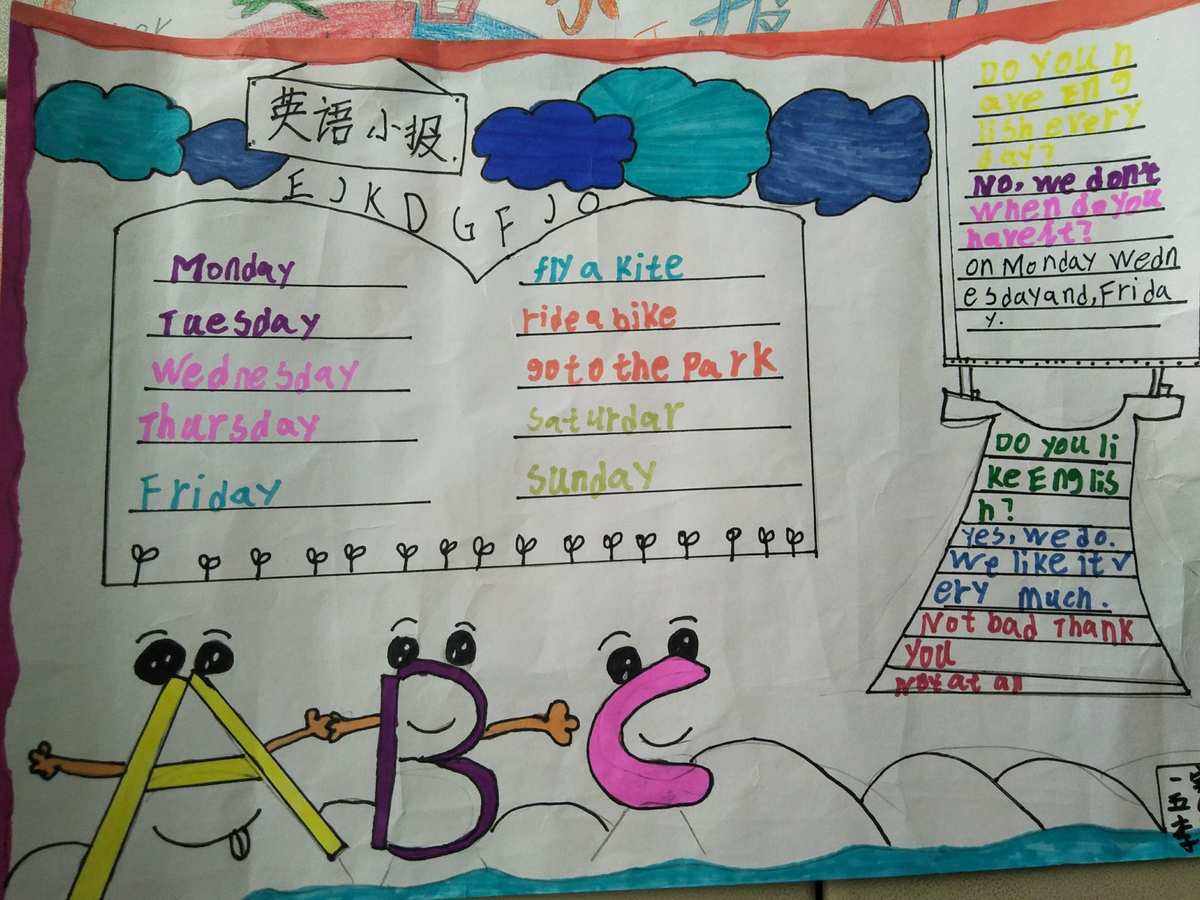 英语小报
E J K D G F J O
Monday
Tuesday
Wednesday
Thursday
Friday
fly a kite
ride a bike
go to the park
Saturdar
Sunday
DO YOU n
ave Eng
lish every
day?
No, we don't
When do you
have it?
on Monday Wedn
esday and, Frida
y.
DO you li
ke Englis
h?
yes, we do.
We like it v
ery much.
Not bad Thank
you
Not at all
A B C
一
五
李